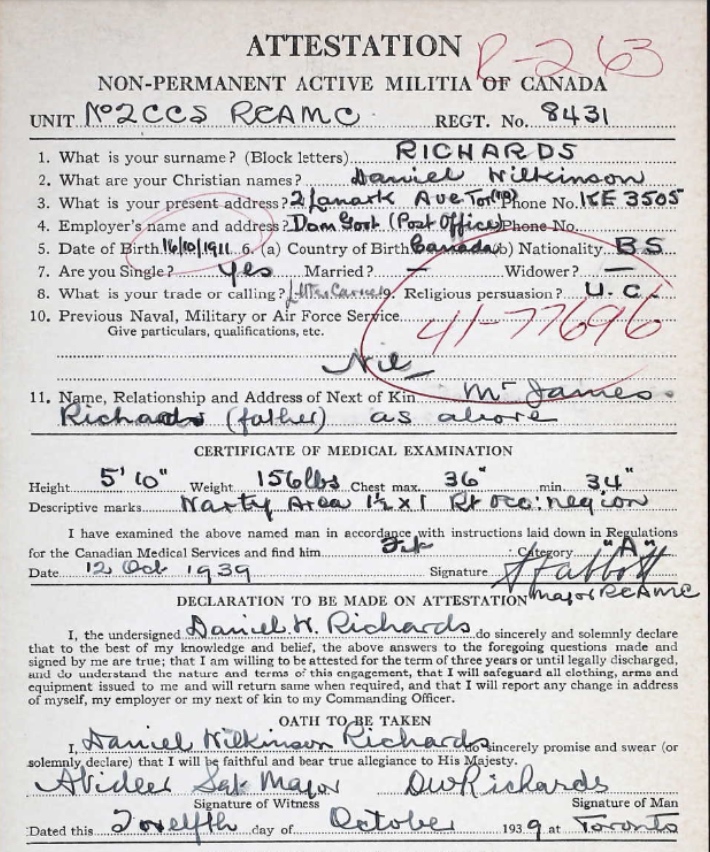 ATTESTATION R-263
NON-PERMANENT ACTIVE MILITIA OF CANADA
UNIT No 2 CCS RCAMC REGT. No. 8431
1. What is your surname? (Block letters) RICHARDS
2. What are your Christian names? Daniel Wilkinson
3. What is your present address? 2 Lanark Ave Tor(10) Phone No. KE 3505
4. Employer's name and address? Dom Govt (Post Office) Phone No.
5. Date of Birth 16/10/1911 6. (a) Country of Birth Canada (b) Nationality BS
7. Are you Single? Yes Married? — Widower? —
8. What is your trade or calling? 9. Religious persuasion? U.C.
10. Previous Naval, Military or Air Force Service 41-77696
Give particulars, qualifications, etc.
Nil
11. Name, Relationship and Address of Next of Kin Mr James
Richards (father) as above
CERTIFICATE OF MEDICAL EXAMINATION
Height 5' 10" Weight 156 lbs Chest max. 36" min. 34"
Descriptive marks Warty Area 1½ x 1 Rt region
I have examined the above named man in accordance with instructions laid down in Regulations
for the Canadian Medical Services and find him Fit Category "A"
Date 12 Oct 1939 Signature
Major RCAMC
DECLARATION TO BE MADE ON ATTESTATION
I, the undersigned Daniel W. Richards do sincerely and solemnly declare
that to the best of my knowledge and belief, the above answers to the foregoing questions made and
signed by me are true; that I am willing to be attested for the term of three years or until legally discharged,
and do understand the nature and terms of this engagement, that I will safeguard all clothing, arms and
equipment issued to me and will return same when required, and that I will report any change in address
of myself, my employer or my next of kin to my Commanding Officer.
OATH TO BE TAKEN
I, Daniel Wilkinson Richards do sincerely promise and swear (or
solemnly declare) that I will be faithful and bear true allegiance to His Majesty.
Sgt Major DW Richards
Signature of Witness Signature of Man
Dated this Twelfth day of October 1939 at Toronto